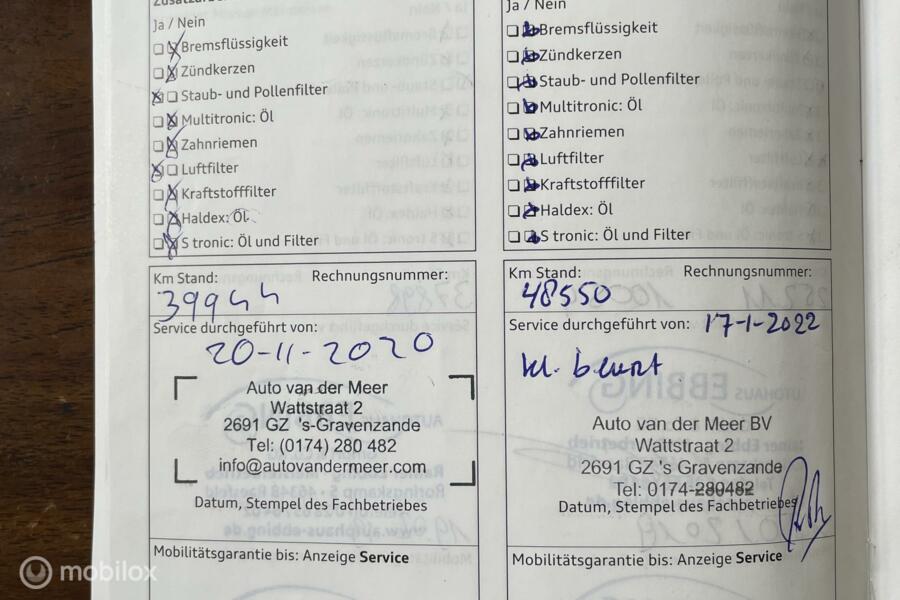 Zusatzarbe
Ja / Nein
Bremsflüssigkeit
Zündkerzen
Staub- und Pollenfilter
Multitronic: Öl
Zahnriemen
Luftfilter
Kraftstofffilter
Haldex: Öl
S tronic: Öl und Filter
Km Stand: Rechnungsnummer:
39944
Service durchgeführt von:
20-11-2020
Auto van der Meer
Wattstraat 2
2691 GZ 's-Gravenzande
Tel: (0174) 280 482
info@autovandermeer.com
Datum, Stempel des Fachbetriebes
Mobilitätsgarantie bis: Anzeige Service
Ja / Nein
Bremsflüssigkeit
Zündkerzen
Staub- und Pollenfilter
Multitronic: Öl
Zahnriemen
Luftfilter
Kraftstofffilter
Haldex: Öl
S tronic: Öl und Filter
Km Stand: Rechnungsnummer:
48550
Service durchgeführt von: 17-1-2022
kl. beurt
Auto van der Meer BV
Wattstraat 2
2691 GZ 's Gravenzande
Tel: 0174-280482
Datum, Stempel des Fachbetriebes
Mobilitätsgarantie bis: Anzeige Service
mobilox